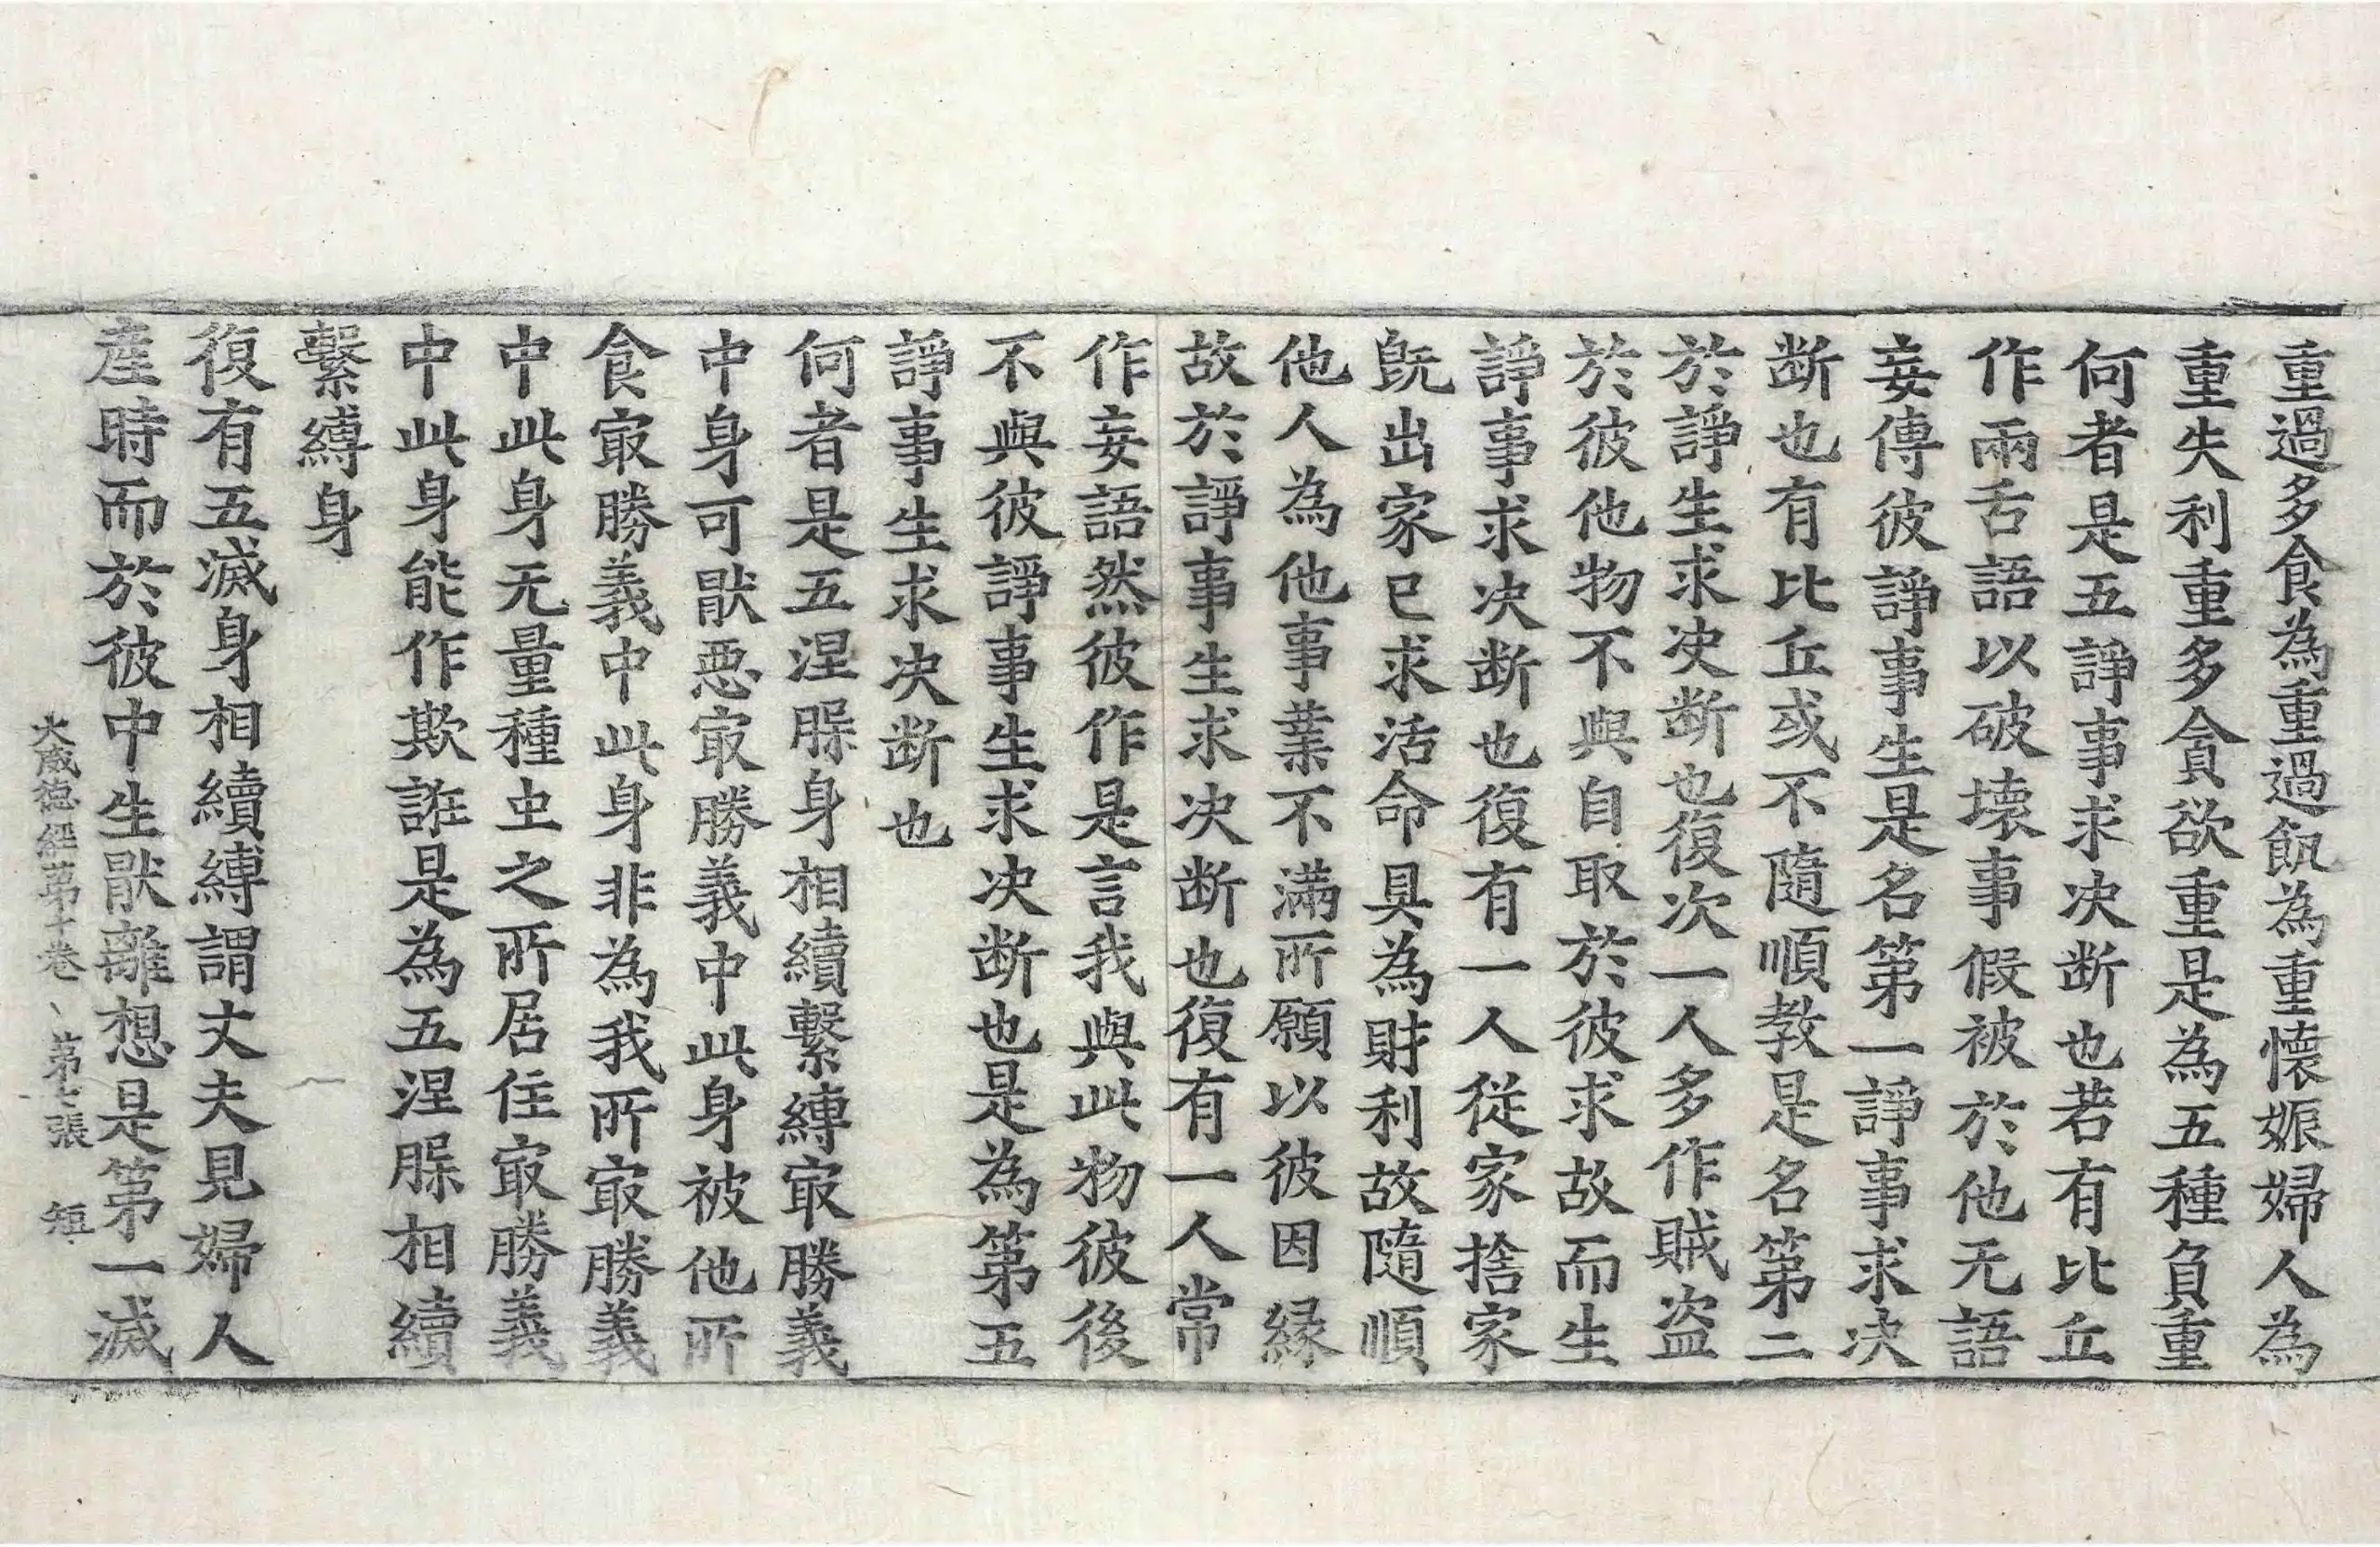 重過多食為重過飢為重懷娠婦人為
重失利重多貪欲重是為五種負重
何者是五諍事求决断也若有比丘
作兩舌語以破壞事假被於他无語
妄傳彼諍事生是名第一諍事求决
断也有比丘或不隨順教是名第二
於諍生求决断也復次一人多作賊盗
於彼他物不與自取於彼求故而生
諍事求决断也復有一人從家捨家
旣出家已求活命具為財利故隨順
他人為他事業不滿所願以彼因縁
故於諍事生求决断也復有一人常
作妄語然彼作是言我與此物彼後
不與彼諍事生求决断也是為第五
諍事生求决断也
何者是五涅𣎅身相續繫縛㝡勝義
中身可猒惡㝡勝義中此身被他所
食㝡勝義中此身非為我所㝡勝義
中此身无量種虫之所居住㝡勝義
中此身能作欺誑是為五涅𣎅相續
繫縛身
復有五滅身相續縛謂丈夫見婦人
産時而於彼中生猒離想是第一滅
大威德經第十卷 第七張 短